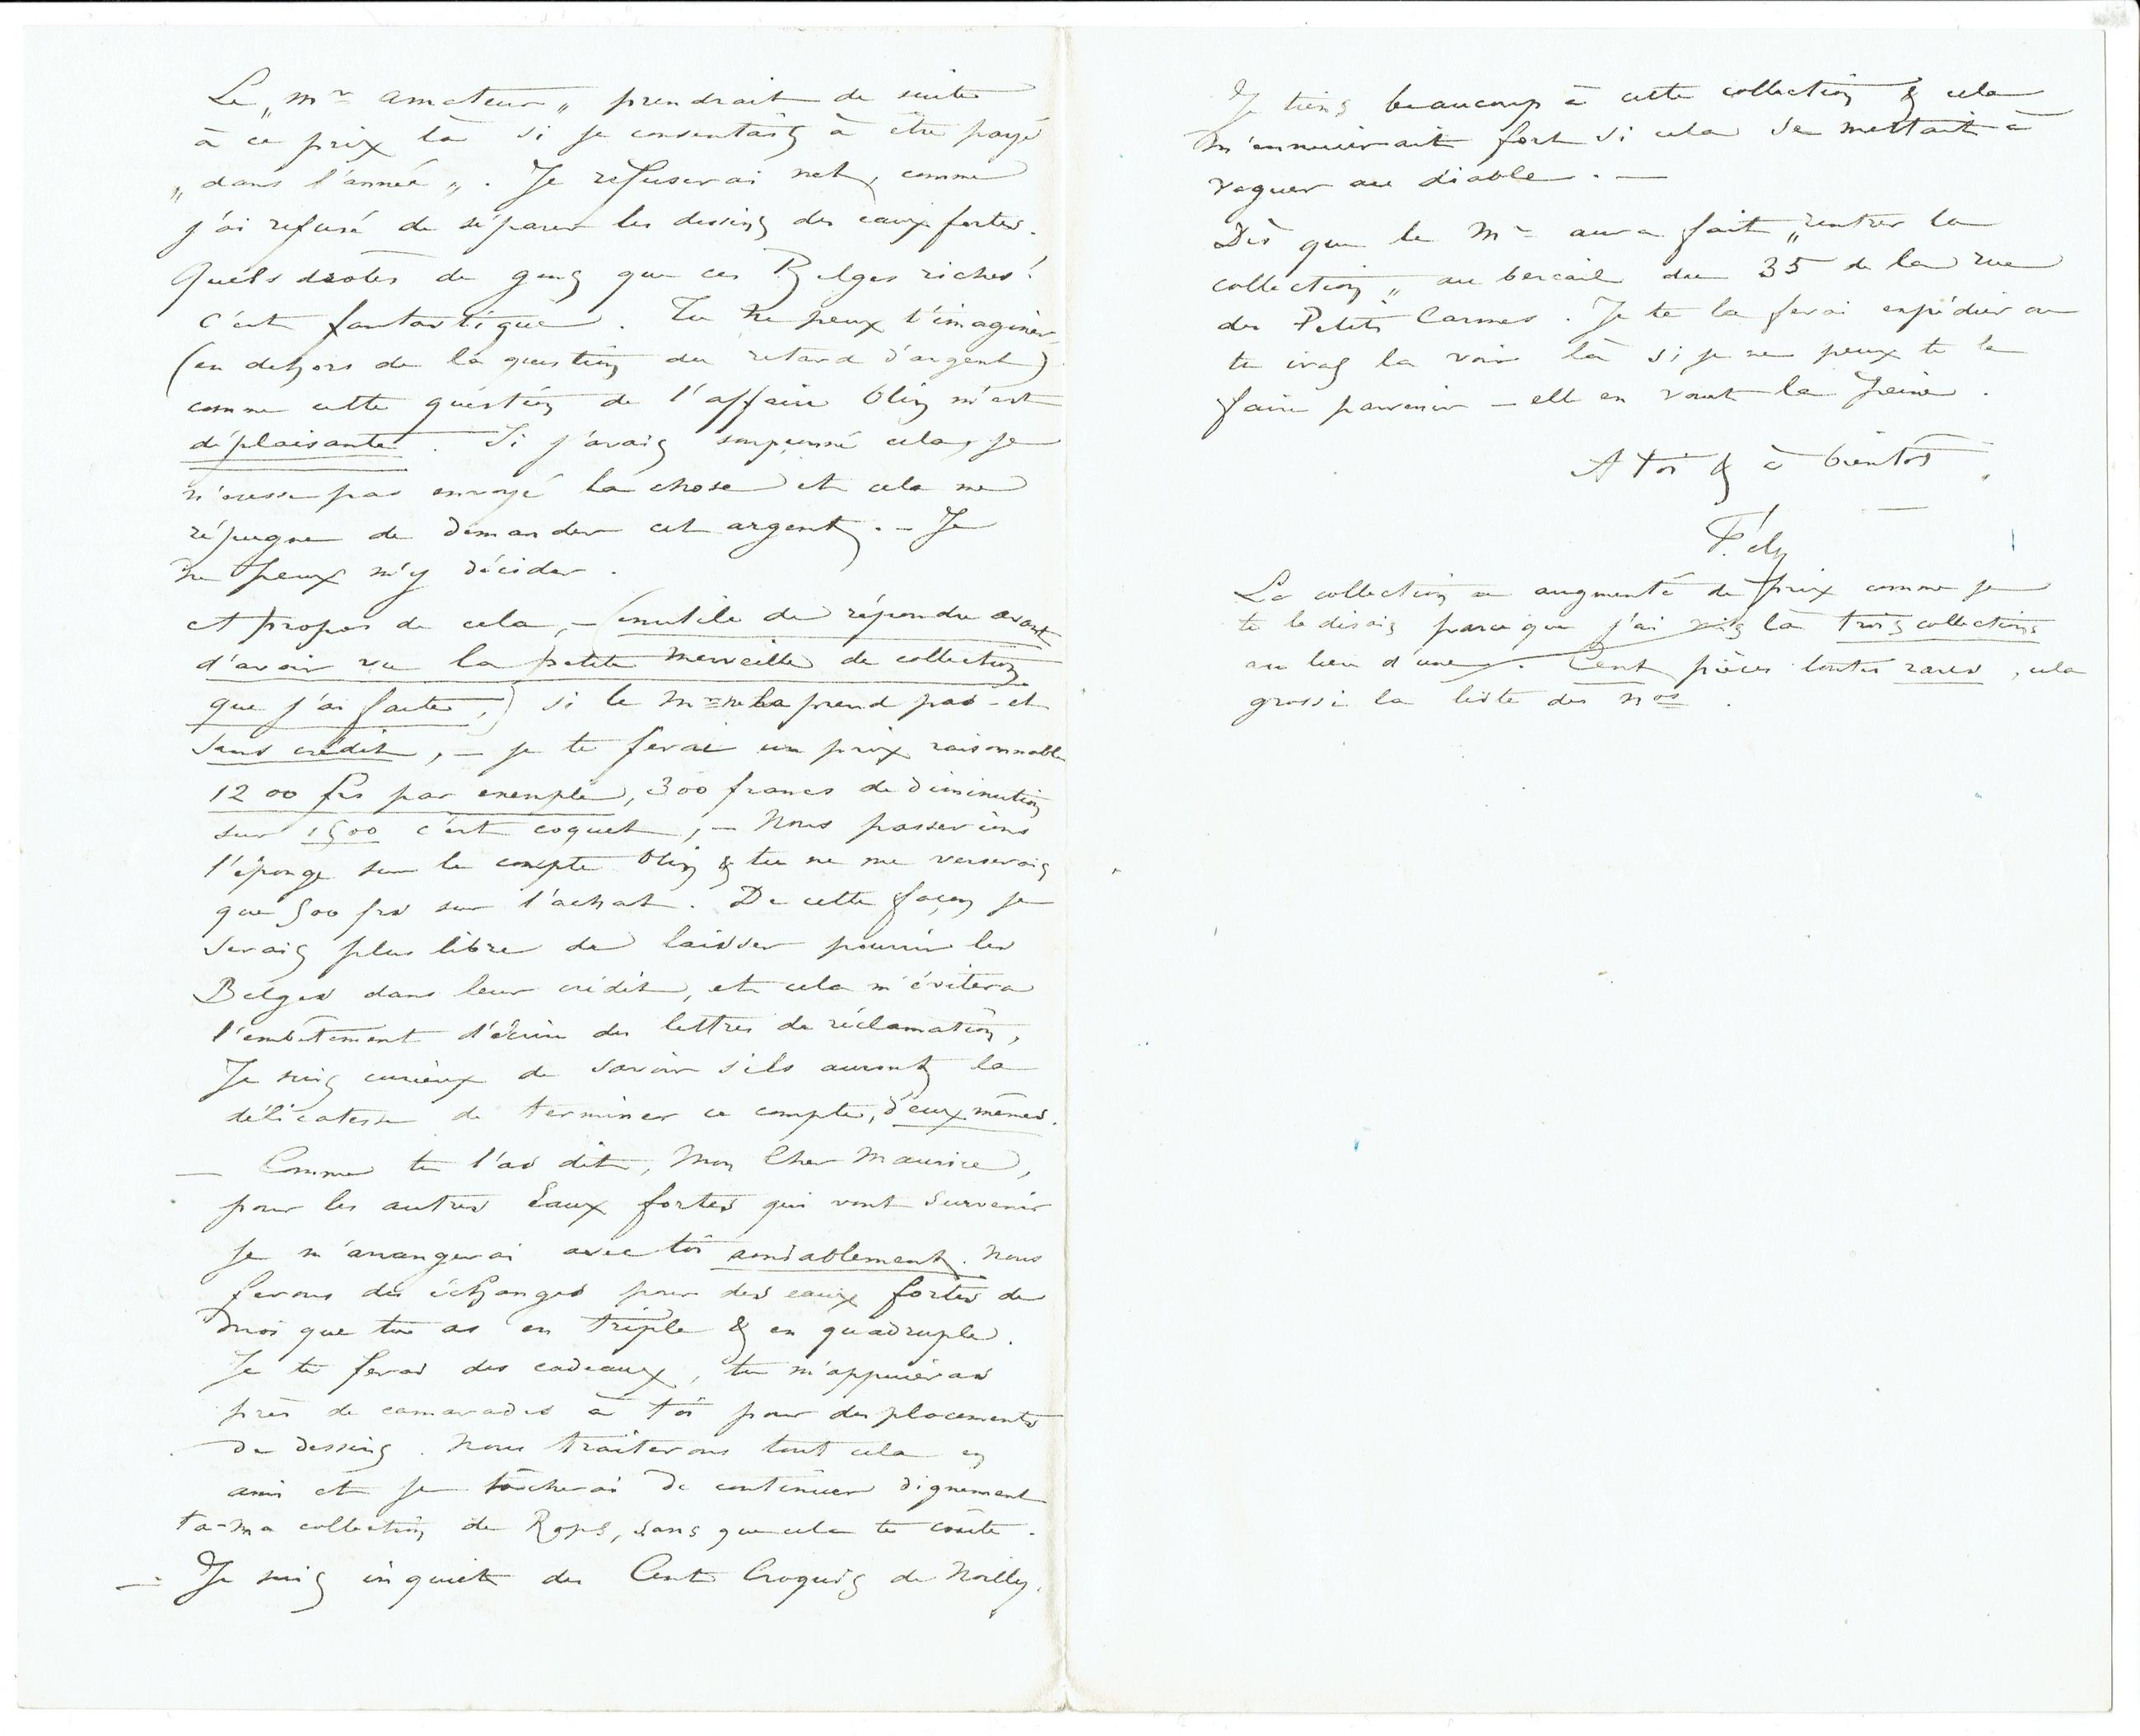 Le „Mr amateur„ prendrait de suite
à ce prix là si je consentais à être payé
„dans l'année„. Je refuserai net, comme
j'ai refusé de séparer les dessins des eaux fortes.
Quels drôles de gens que ces Belges riches!
C'est fantastique. Tu ne peux t'imaginer,
(en dehors de la question du retard d'argent)
comme cette question de l'affaire Olin m'est
déplaisante. Si j'avais soupçonné cela, je
n'eusse pas envoyé la chose et cela me
répugne de demander cet argent. – Je
ne peux m'y décider.
A propos de cela, – (inutile de répondre avant
d'avoir vu la petite merveille de collection
que j'ai faite,) si le Mr ne la prend pas – et
sans crédit, – je te ferai un prix raisonnable
1200 frs par exemple, 300 francs de diminution
sur 1500 c'est coquet, – Nous passerions
l'éponge sur le compte Olin & tu ne me verserais
que 500 frs sur l'achat. De cette façon je
serais plus libre de laisser pourrir les
Belges dans leur crédit, et cela m'évitera
l'embêtement d'écrire des lettres de réclamation,
Je suis curieux de savoir s'ils auront la
délicatesse de terminer ce compte, d'eux mêmes.
— Comme tu l'as dit, Mon Cher Maurice,
pour les autres Eaux fortes qui vont survenir
je m'arrangerai avec toi amiablement. Nous
ferons des échanges pour des eaux fortes de
moi que tu as en triple & en quadruple.
Je te ferai des cadeaux, tu m'appuieras
près de camarades à toi pour des placements
de dessins. Nous traiterons tout cela en
ami et je tâcherai de continuer dignement
ta-ma collection de Rops, sans que cela te coûte.
— Je suis inquiet des Cent Croquis de Noilly.
Je tiens beaucoup à cette collection & cela
m'ennuierait fort si cela se mettait à
voguer au diable. —
Dès que le Mr aura fait „rentrer la
collection„ au bercail du 35 de la rue
des Petits Carmes. Je te la ferai expédier ou
tu iras la voir là si je ne peux te la
faire parvenir – elle en vaut la peine.
A toi & à bientôt,
Fély
La collection a augmenté de prix comme je
te le disais parce que j'ai mis là trois collections
au lieu d'une. Cent pièces toutes rares, cela
grossi la liste des nos.